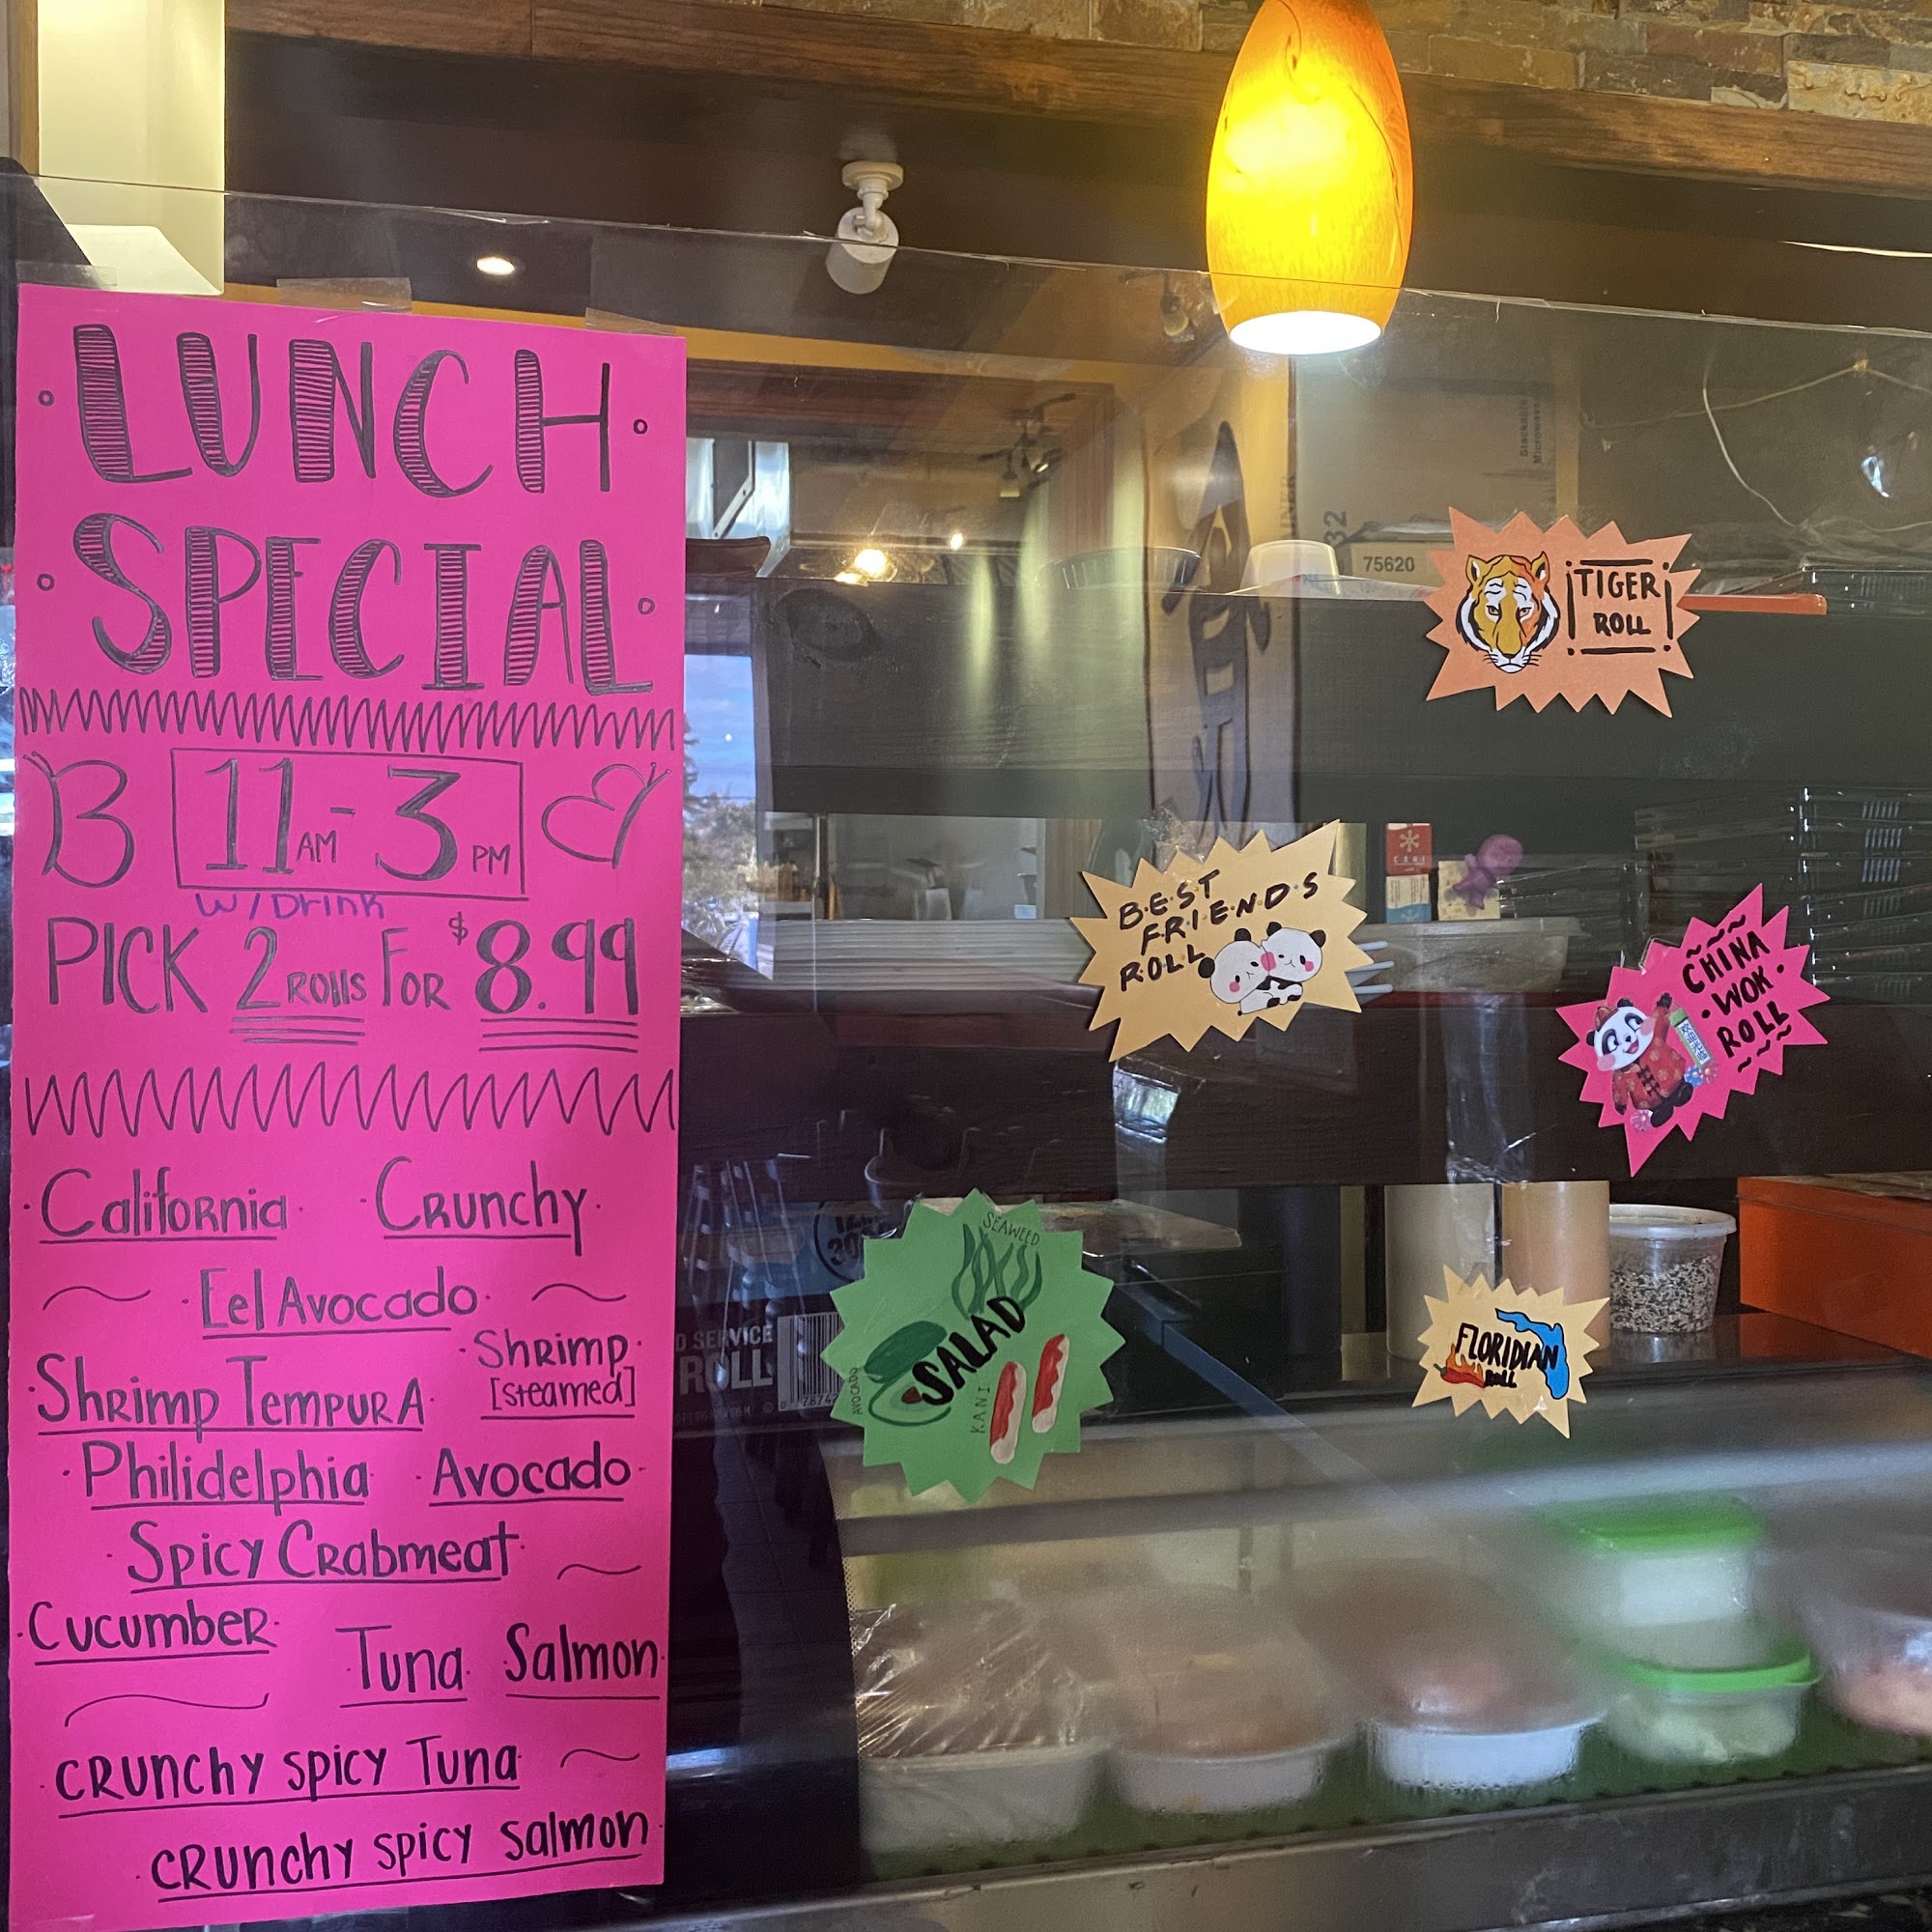 LUNCH
SPECIAL
11AM-3PM
W/Drink
PICK 2 ROllS FOR $8.99
California Crunchy
Eel Avocado
Shrimp Tempura
Shrimp
[steamed]
Philidelphia Avocado
Spicy Crabmeat
Cucumber
Tuna Salmon
CRUnchy spicy Tuna
CRUnchy spicy salmon
TIGER
ROLL
B·E·S·T
F·R·I·E·N·D·S
R·O·L·L
CHINA
·WOK·
ROLL
SEAWEED
SALAD
AVOCADO
KANI
FLORIDIAN
ROLL
75620
32
Stackable
SERVICE
ROLL